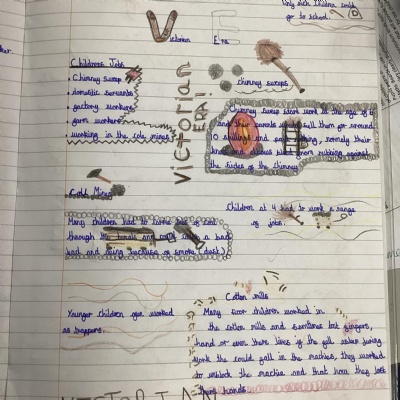 Only rich children could
go to school.
Victorian Era
Childrens Jobs
• Chimney sweep
• domestic servants
• factory workers
farm workers
• working in the cole mines
Victorian
ERA!
chimney sweeps
Chimney sweep start work at the age of 6
and their parents would sell them for around
10 shillings and
knees and elbows bled from rubbing against
the sides of the chimney
Cole Mines
Many children had to carry lots of coal
through the tunnels and
back and
Children at 4 had to work a range
of jobs.
Younger children often worked
as trappers.
Cotton mills
Many poor children worked in
the cotton mills and sometimes lost fingers,
hand or even there lives if the
work the could fall in the machines, they worked
to unblock the machine and that how they lost
there hands
VICTORIAN